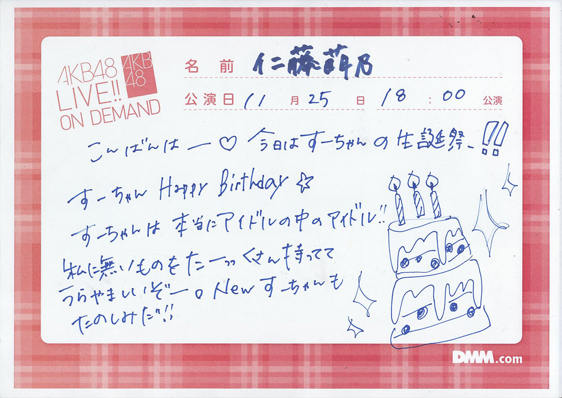 AKB48
LIVE!!
ON DEMAND
AKB
48
名前 仁藤萌乃
公演日 11月25日 18:00公演
こんばんはー♡ 今日はすーちゃんの生誕祭ー!!
すーちゃん Happy Birthday☆
すーちゃんは本当にアイドルの中のアイドル!!
私に無いものをたーっっくさん持ってて
うらやましいぞー。Newすーちゃんも
たのしみだ!!
DMM.com